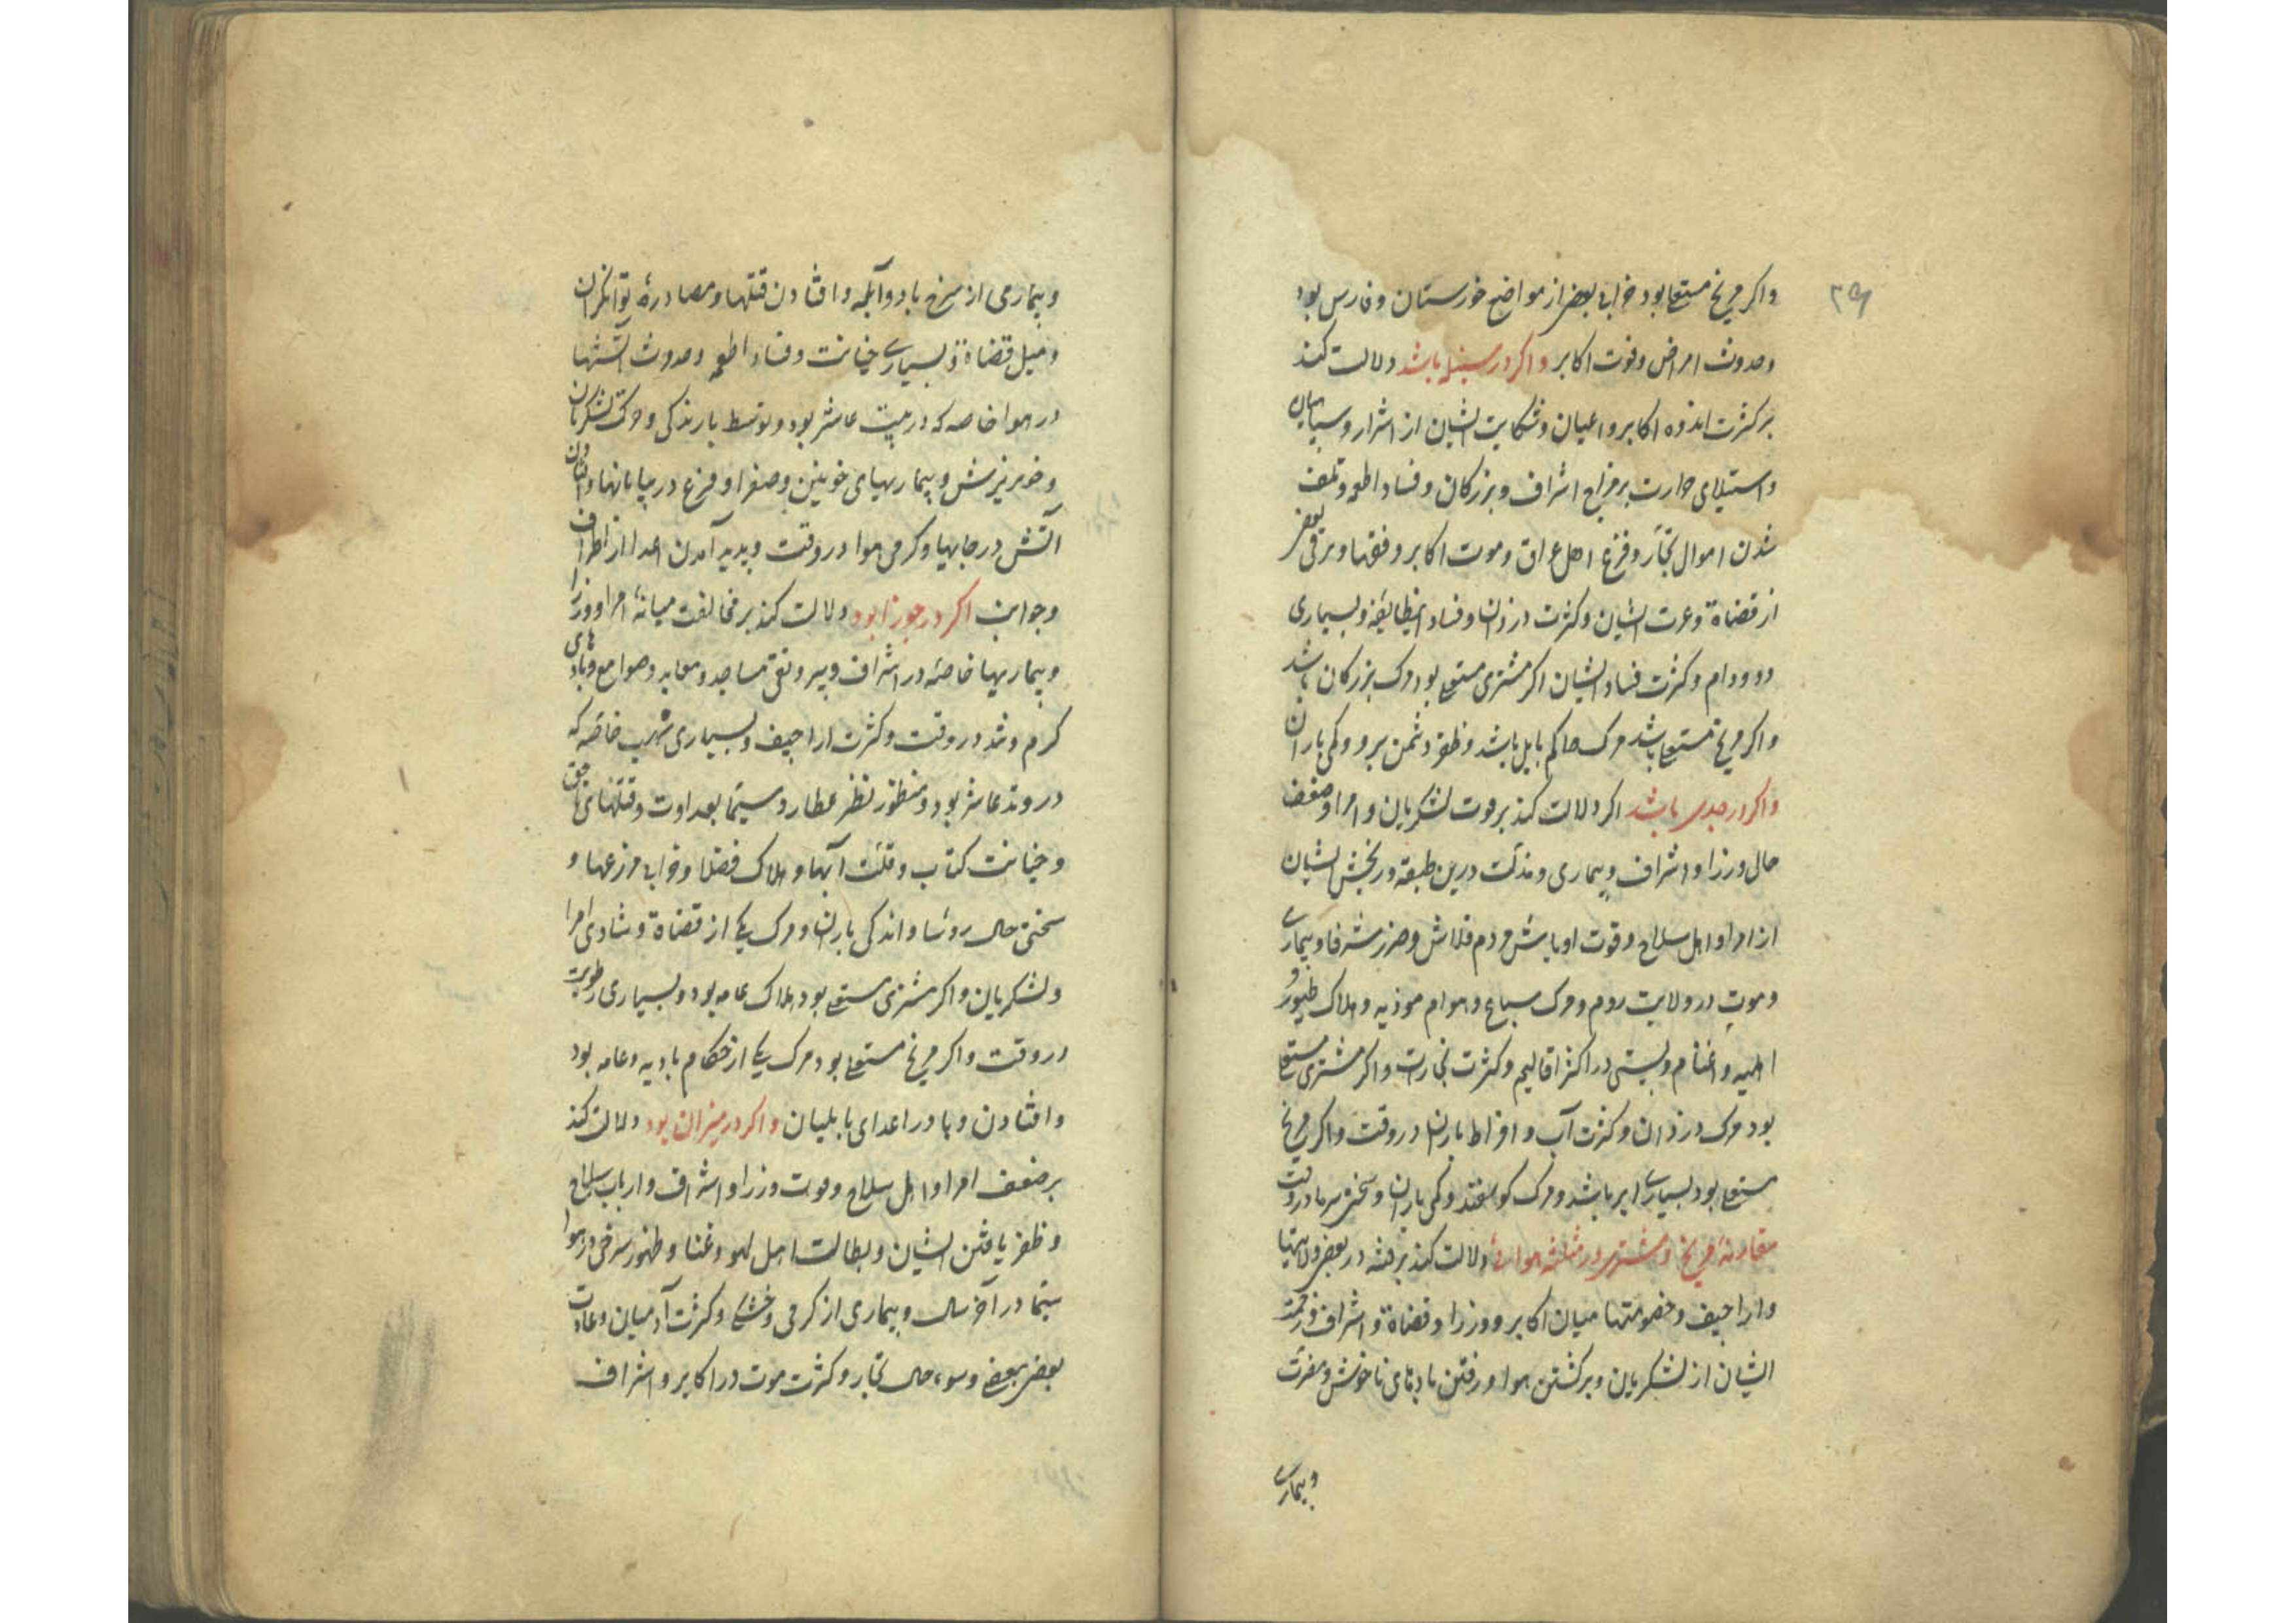 ۲۹
واکر مریخ مستعلی بود خرابی بعضی از مواضع خوزستان و فارس بود
وحدوث امراض وفوت اکابر واکر در سنبله باشد دلالت کند
بر کثرت اندوه اکابر واعیان وشکایت ایشان از اشرار وسپاهیان
واستیلای حرارت بر مزاج اشراف وبزرکان وفساد اطعمه وتلف
شدن اموال تجّار وفزع اهل عراق وموت اکابر وفقها وترقی بعضی
از قضاة وعزت ایشان وکثرت دزدان وفساد اینطایفه وبسیاری
دد ودام وکثرت فساد ایشان اکر مشتری مستعلی بود مرک بزرکان باشد
واکر مریخ مستعلی باشد مرک حاکم بابل باشد وظفر دشمن برو وکمی باران
واکر در جدی باشد اکر دلالت کند بر موت لشکریان وامرا وضعف
حال وزرا واشراف وبیماری ومذلت درین طبقه ورنجش ایشان
از امرا واهل سلاح وقوت اوباش ومردم قلاش وضرر شرفا وبیماری
وموت در ولایت روم ومرک سباع وهوام موذیه وهلاک طیور و
اهلیه واغنام وپستی در اکثر اقالیم وکثرت تجارت واکر مشتری مستعلی
بود مرک دزدان وکثرت آب وافراط باران در وقت واکر مریخ
مستعلی بود بسیاری ابر باشد ومرک کوسفند وکمی باران وسختی سرما در وقت
مقارنهٔ مریخ ومشتری در مثلثه هوائی دلالت کند بر فتنه در بعضی ولایتها
واراجیف وخصومتها میان اکابر ووزرا وقضاة واشراف وزحمت
ایشان از لشکریان وبرکشتن هوا ورفتن بادهای ناخوش ومضرت
وبیماری
وبیماری از سرخ باد وآبله وافتادن قتلها ومصادرهٔ توانکران
ومیل قضاة وبسیاری خیانت وفساد اطعمه وحدوث آتشها
در هوا خاصه که در بیت عاشر بود وتوسط بارندکی وحرکت لشکریان
وخونریزش وبیماریهای خونین وصفرا وفزع در بیابانها وافتادن
آتش در جایها وکرمی هوا در وقت وپدید آمدن اعدا از اطراف
وجوانب اکر در جوزا بود دلالت کند بر مخالفت میانهٔ امرا ووزرا
وبیماریها خاصّه در اشراف وبیرونقی مساجد ومعابد وصوامع وبادهای
کرم وتند در وقت وکثرت اراجیف وبسیاری شهب خاصّه که
در وتد عاشر بود ومنظور نظر عطارد وسیّما بعداوت وقتلهای ناحق
وخیانت کتاب وقلّت آبها وهلاک فضلا وخرابی مزرعها و
سختی حال رؤسا واندکی باران ومرک یکی از قضاة وشادی امرا
ولشکریان واکر مشتری مستعلی بود هلاک عامه بود وبسیاری رطوبت
در وقت واکر مریخ مستعلی بود مرک یکی از حکام بادیه وعامه بود
وافتادن وبا در اعدای بابلیان واکر در میزان بود دلالت کند
بر ضعف امرا واهل سلاح وموت وزرا واشراف وارباب سلاح
وظفر یافتن ایشان وبطالت اهل لهو وغنا وظهور سرخی در هوا
سیّما در آخر سال وبیماری از کرمی وخشکی وکثرت آدمیان وعادت
بعضی ببعضی وسوء حال تجار وکثرت موت در اکابر واشراف